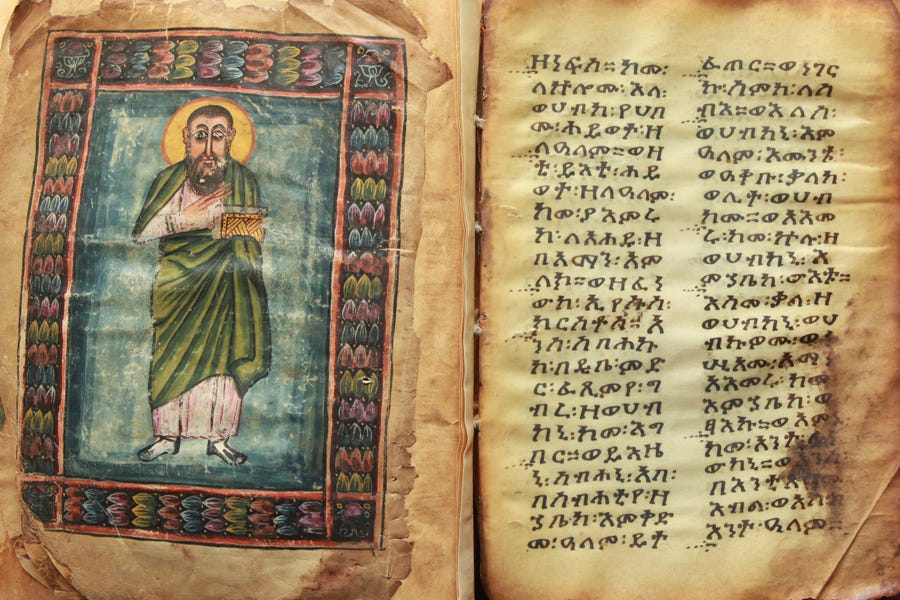 ዘነፍስ። ከመ፡
ለዙሎሙ፡ እለ፡
ወሀብከ፡ የሀቦ
ሙ፡ሕይወቶ፡ዘ
ለዓለም። ወዛ
ቲ፡ይእቲ፡ሕይ
ወት፡ዘለዓለም፡
ከመ፡ያእምሩ
ከ፡ለአሐዱ፡ዘ
በአማን፡አም
ላክ። ወዘፈነ
ውከ፡ኢየሱስ፡
ክርስቶስ። አ
ንሰ፡ሰባሕኩ
ከ፡በዲበ፡ምድ
ር፡ፈጺምየ፡ግ
ብረ፡ዘወሀብ
ከኒ፡ከመ፡እግ
በር። ወይእዜ
ኒ፡ሰብሐኒ፡አባ፡
በስብሐቲየ፡ዘ
ኀቤከ፡እምቅድ
መ፡ዓለም፡ይት
ፈጠር። ወነገር
ኩ፡ስምከ፡ለሰ
ብእ። ወእለሰ፡
ወሀብከኒ፡እም
ዓለም፡እሙንቱ፡
ወዓቀቡ፡ቃለከ፡
ወሊተ፡ወሀብ
ከሙ። ወአእመ
ሩ፡ከመ፡ኵሉ፡ዘ
ወሀብከኒ፡ እ
ምኀቤከ፡ውእቱ።
እስመ፡ቃለ፡ዘ
ወሀብከኒ፡ወሀ
ብክዎሙ፡
አእመሩ፡ከመ
እምኀቤከ፡ወ
ፃእኩ። ወአም
ከመ፡አንተ፡
እንተ፡ዓለም።